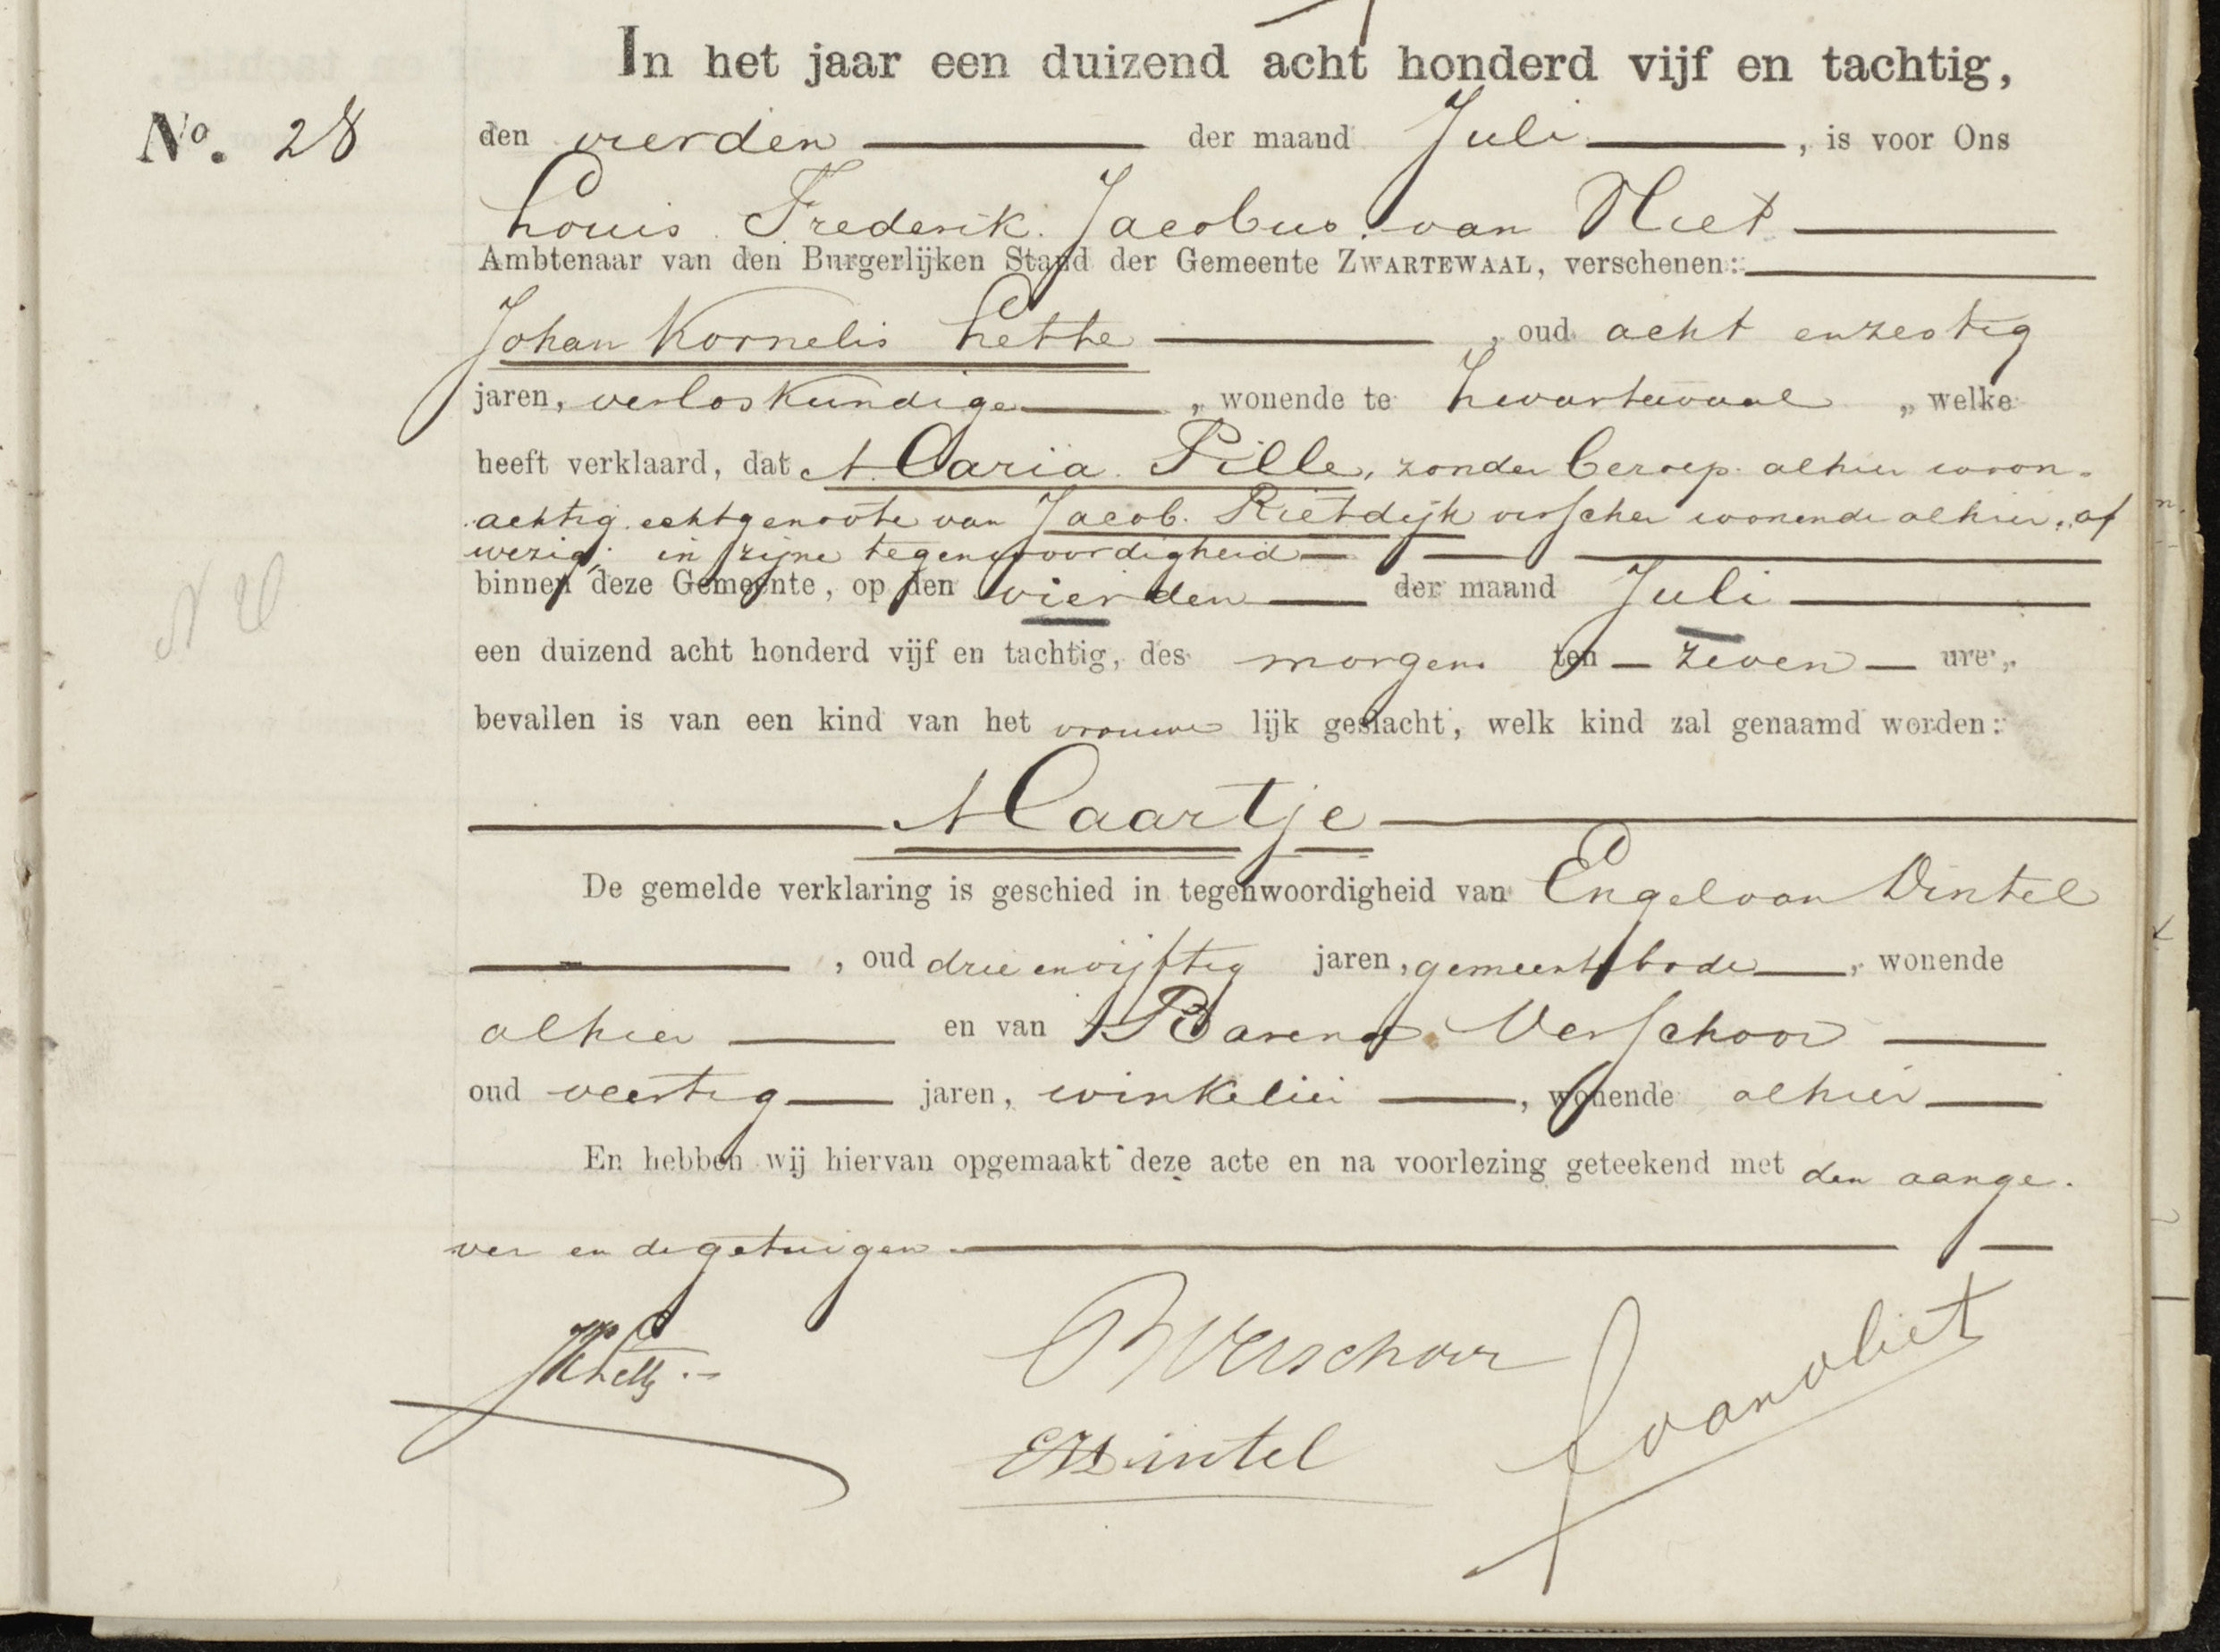 In het jaar een duizend acht honderd vijf en tachtig,
No. 28
den vierden der maand Juli, is voor Ons
Louis Frederik Jacobus van Vliet
Ambtenaar van den Burgerlijken Stand der Gemeente ZWARTEWAAL, verschenen:
Johan Kornelis Lette, oud acht en zestig
jaren, verloskundige, wonende te Zwartewaal, welke
heeft verklaard, dat Maria Pille, zonder beroep alhier woon-
achtig echtgenoote van Jacob Rietdijk visscher wonende alhier, af
wezig; in zijne tegenwoordigheid
binnen deze Gemeente, op den vierden der maand Juli
een duizend acht honderd vijf en tachtig, des morgens ten zeven ure,
bevallen is van een kind van het vrouwe lijk geslacht, welk kind zal genaamd worden:
Maartje
De gemelde verklaring is geschied in tegenwoordigheid van Engel van Dintel
, oud drie en vijftig jaren, gemeentebode, wonende
alhier en van Barend Verschoor
oud veertig jaren, winkelier, wonende alhier
En hebben wij hiervan opgemaakt deze acte en na voorlezing geteekend met den aange-
ver en de getuigen
JKLette
B Verschoor
EVDintel
L van Vliet